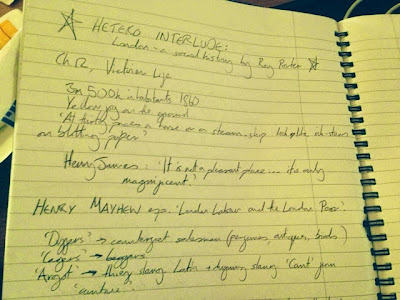 ☆ HETERO INTERLUDE:
London - a social history by Roy Porter ☆
Ch 12, Victorian Life
3m 500k inhabitants 1860
Yellow fog on the ground
'At thirty paces a house or a steam-ship look like ink-stains
on blotting paper'
Henry James: 'It is not a pleasant place... it is only
magnificent.'
HENRY MAYHEW esp. 'London Labour and the London Poor'.
→ counterfeit salesmen (perfumes, antiques, )
→ beggars
'Argot' → thievy slang Latin + gypsy slang 'Cant' from